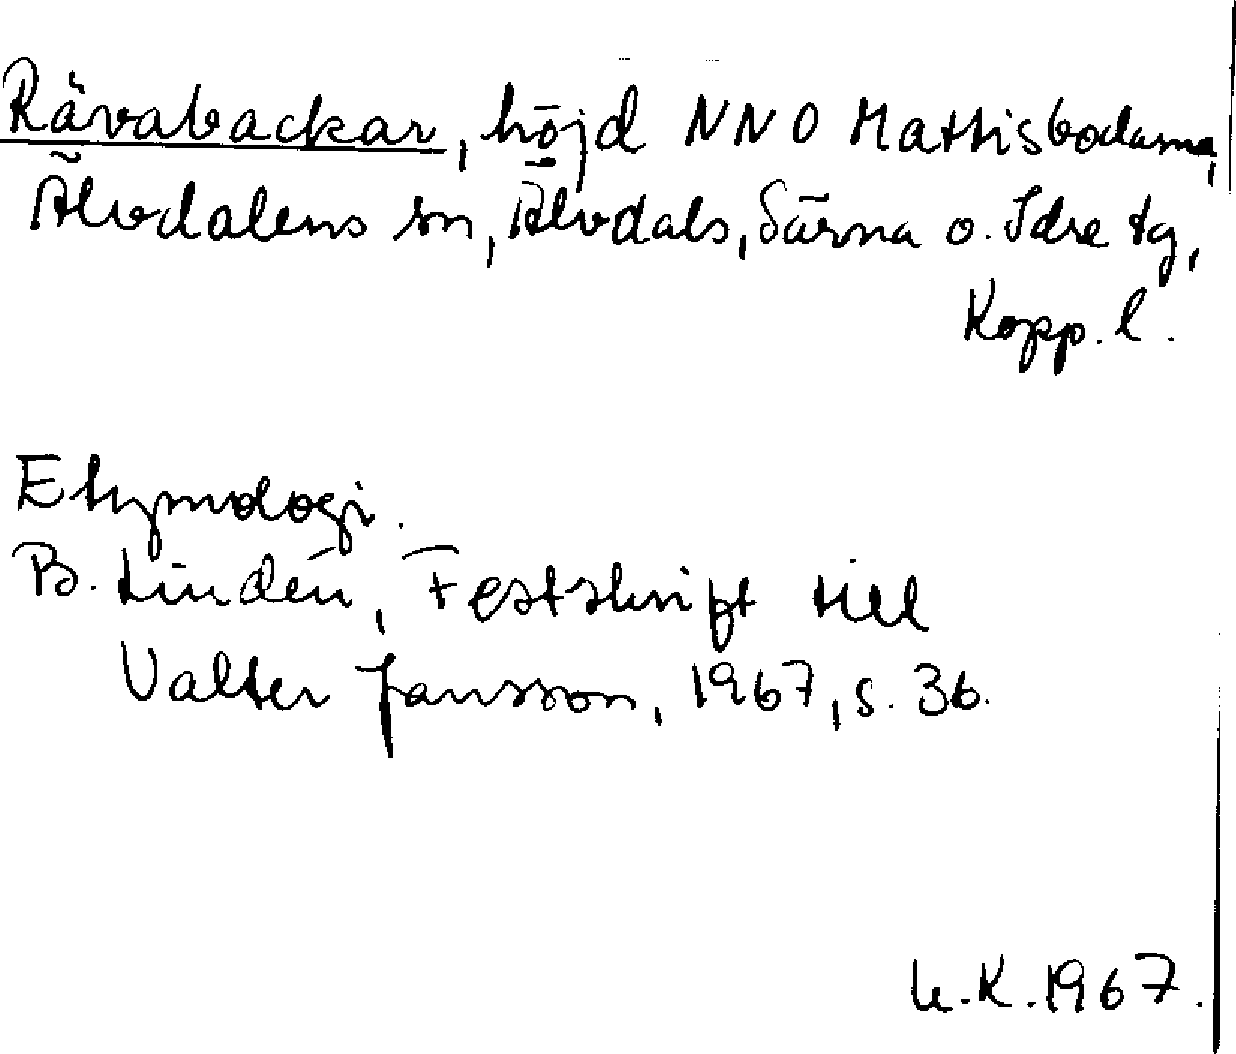 Rävabackar, höjd NNO Mathisbodarna,
Älvdalens sn, Älvdals, Särna o. Idre tg,
Kopp. l.
Etymologi.
B. Lindén, Festskrift till
Valter Jansson, 1967, s. 36.
U.K. 1967.